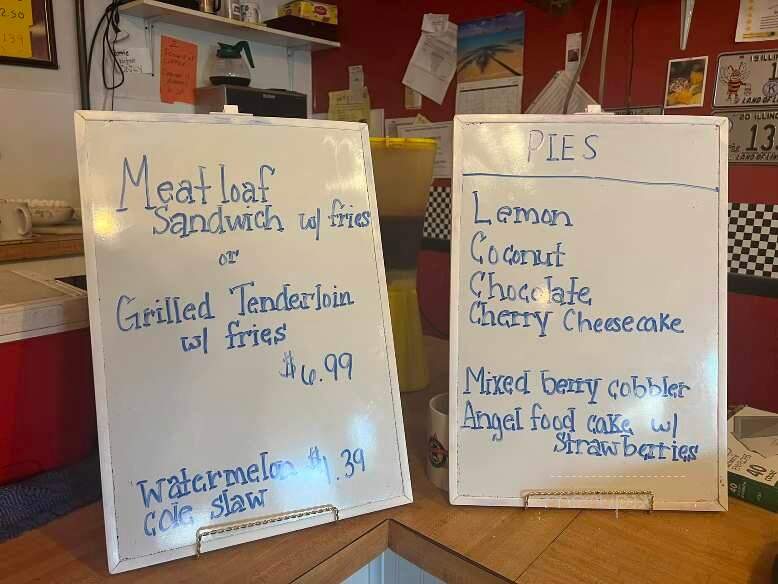 2.50
Meat loaf
Sandwich w/ fries
or
Grilled Tenderloin
w/ fries
$6.99
Watermelon $1.39
cole slaw
PIES
Lemon
Coconut
Chocolate
Cherry Cheesecake
Mixed berry cobbler
Angel food cake w/
Strawberries
20 ILLINO
13
LAND OF LIN
40